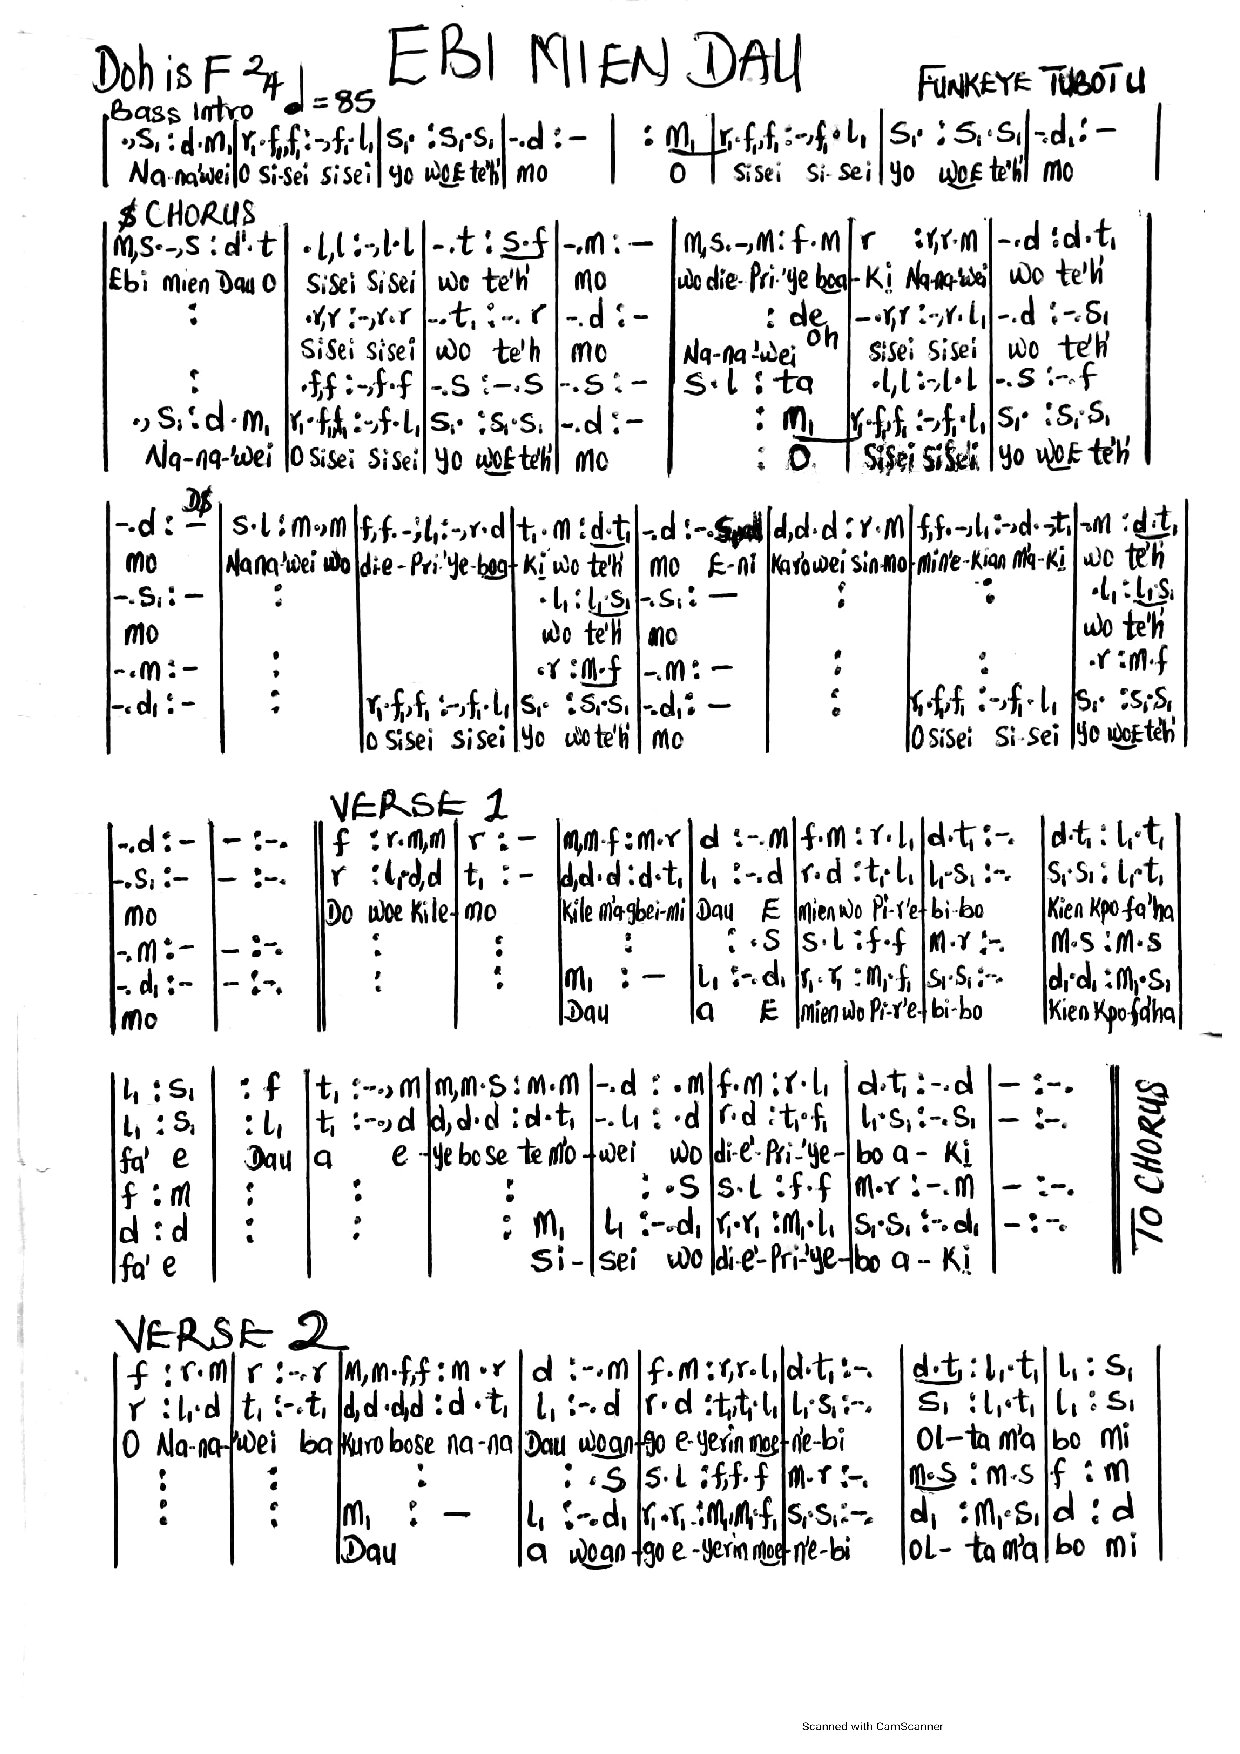 EBI MIEN DAU
Doh is F 2/4 ♩=85
FUNKEYE TUBOTU
Bass Intro
| .,s₁ :d.m₁ | r₁.f₁,f₁ :-,f₁.l₁ | s₁. :s₁.s₁ | -.d :- | :m₁ | r₁.f₁,f₁ :-,f₁.l₁ | s₁. :s₁.s₁ | -.d₁ :- |
Na-na'wei O si-sei sisei yo woE te'h mo O sisei si-sei yo woE te'h mo
$ CHORUS
| m,s.-,s :d'.t | .l,l :-,l.l | -.t :s.f | -.m :- | m,s.-,m :f.m | r :r,r.m | -.d :d.t₁ |
Ebi mien Dau O sisei sisei wo te'h mo wo die-Pri-'ye bog-Ki Na-na-wei wo te'h
: | .r,r :-,r.r | -.t₁ :-.r | -.d :- | : de | -.r,r :-,r.l₁ | -.d :-.s₁
sisei sisei wo te'h mo Na-na-'wei oh sisei sisei wo te'h
: | .f,f :-,f.f | -.s :-.s | -.s :- | s.l :ta | .l,l :-,l.l | -.s :-.f
.,s₁ :d.m₁ | r₁.f₁,f₁ :-,f₁.l₁ | s₁. :s₁.s₁ | -.d :- | :m₁ | r₁.f₁,f₁ :-,f₁.l₁ | s₁. :s₁.s₁
Na-na-'wei O sisei sisei yo woE te'h mo : O sisei sisei yo woE te'h
D$
| -.d :- | s.l :m.,m | f,f.-,l₁ :-,r.d | t₁.m :d.t₁ | -.d :-. | d,d.d :r.m | f,f.-,l₁ :-d.-,t₁ | -.m :d.t₁
mo Nana'wei wo die-Pri-'ye-bog-Ki wo te'h mo E-ni Karowei sin-mo-min'e-Kian m'a-Ki wo te'h
-.s₁ :- | : | .l₁ :l₁.s₁ | -.s₁ :- | : | : | .l₁ :l₁.s₁
mo wo te'h mo wo te'h
-.m :- | : | .r :m.f | -.m :- | : | : | .r :m.f
-.d₁ :- | : | r₁.f₁,f₁ :-,f₁.l₁ | s₁. :s₁.s₁ | -.d₁ :- | : | r₁.f₁,f₁ :-,f₁.l₁ | s₁. :s₁.s₁
O sisei sisei yo wo te'h mo O sisei si-sei yo woE te'h
VERSE 1
| -.d :- | - :-. || f :r.m,m | r :- | m,m.f :m.r | d :-.m | f.m :r.l₁ | d.t₁ :-. | d.t₁ :l₁.t₁ |
-.s₁ :- | - :-. || r :l₁.d,d | t₁ :- | d,d.d :d.t₁ | l₁ :-.d | r.d :t₁.l₁ | l₁.s₁ :-. | s₁.s₁ :l₁.t₁
mo Do woe Kile-mo Kile m'agbei-mi Dau E mien wo Pi-r'e-bi-bo Kien Kpo fa'ha
-.m :- | - :-. || : | : | : | :.s | s.l :f.f | m.r :-. | m.s :m.s
-.d₁ :- | - :-. || : | : | m₁ :- | l₁ :-.d₁ | r₁.r₁ :m₁.f₁ | s₁.s₁ :-. | d₁.d₁ :m₁.s₁
mo Dau a E mien wo Pi-r'e-bi-bo Kien Kpo fa'ha
| l₁ :s₁ | :f | t₁ :-.,m | m,m.s :m.m | -.d :.m | f.m :r.l₁ | d.t₁ :-.d | - :-. ||
l₁ :s₁ | :l₁ | t₁ :-.,d | d,d.d :d.t₁ | -.l₁ :.d | r.d :t₁.f₁ | l₁.s₁ :-.s₁ | - :-.
fa' e Dau a e-ye bo se te m'o-wei wo di-e'-Pri-'ye-bo a-Ki
f :m | : | : | : | :.s | s.l :f.f | m.r :-.m | - :-.
d :d | : | : | :m₁ | l₁ :-.d₁ | r₁.r₁ :m₁.l₁ | s₁.s₁ :-.d₁ | - :-.
fa' e Si-sei wo di-e'-Pri-'ye-bo a-Ki
TO CHORUS
VERSE 2
| f :r.m | r :-.r | m,m.f,f :m.r | d :-.m | f.m :r,r.l₁ | d.t₁ :-. | d.t₁ :l₁.t₁ | l₁ :s₁ |
r :l₁.d | t₁ :-.t₁ | d,d.d,d :d.t₁ | l₁ :-.d | r.d :t₁,t₁.l₁ | l₁.s₁ :-. | s₁ :l₁.t₁ | l₁ :s₁
O Na-na-'wei ba Kuro bose na-na Dau woan-go e-yerin moe-n'e-bi Ol-ta m'a bo mi
: | : | : | :.s | s.l :f,f.f | m.r :-. | m.s :m.s | f :m
: | : | m₁ :- | l₁ :-.d₁ | r₁.r₁ :m₁,m₁.f₁ | s₁.s₁ :-. | d₁ :m₁.s₁ | d :d
Dau a woan-go e-yerin moe-n'e-bi Ol-ta m'a bo mi
Scanned with CamScanner